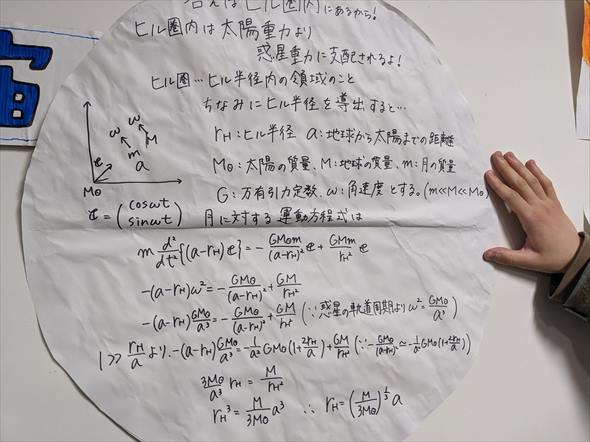 答えはヒル圏内にあるから!
ヒル圏内は太陽重力より
惑星重力に支配されるよ!
ヒル圏…ヒル半径内の領域のこと
ちなみにヒル半径を導出すると…
宙
ω ω M
e m
a
M⊙
rH:ヒル半径 a:地球から太陽までの距離
M⊙:太陽の質量、M:地球の質量、m:月の質量
G:万有引力定数、ω:角速度とする。(m≪M≪M⊙)
e = (cosωt sinωt) 月に対する運動方程式は
m d²/dt² {(a-rH)e} = - GM⊙m/(a-rH)² e + GMm/rH² e
-(a-rH)ω² = - GM⊙/(a-rH)² + GM/rH²
-(a-rH) GM⊙/a³ = - GM⊙/(a-rH)² + GM/rH² (∵惑星の軌道周期より ω² = GM⊙/a³)
1 ≫ rH/a より、-(a-rH) GM⊙/a³ = -1/a² GM⊙(1+2rH/a) + GM/rH² (∵ - GM⊙/(a-rH)² ≃ -1/a² GM⊙(1+2rH/a))
3M⊙/a³ rH = M/rH²
rH³ = M/3M⊙ a³ ∴ rH = (M/3M⊙)^(1/3) a